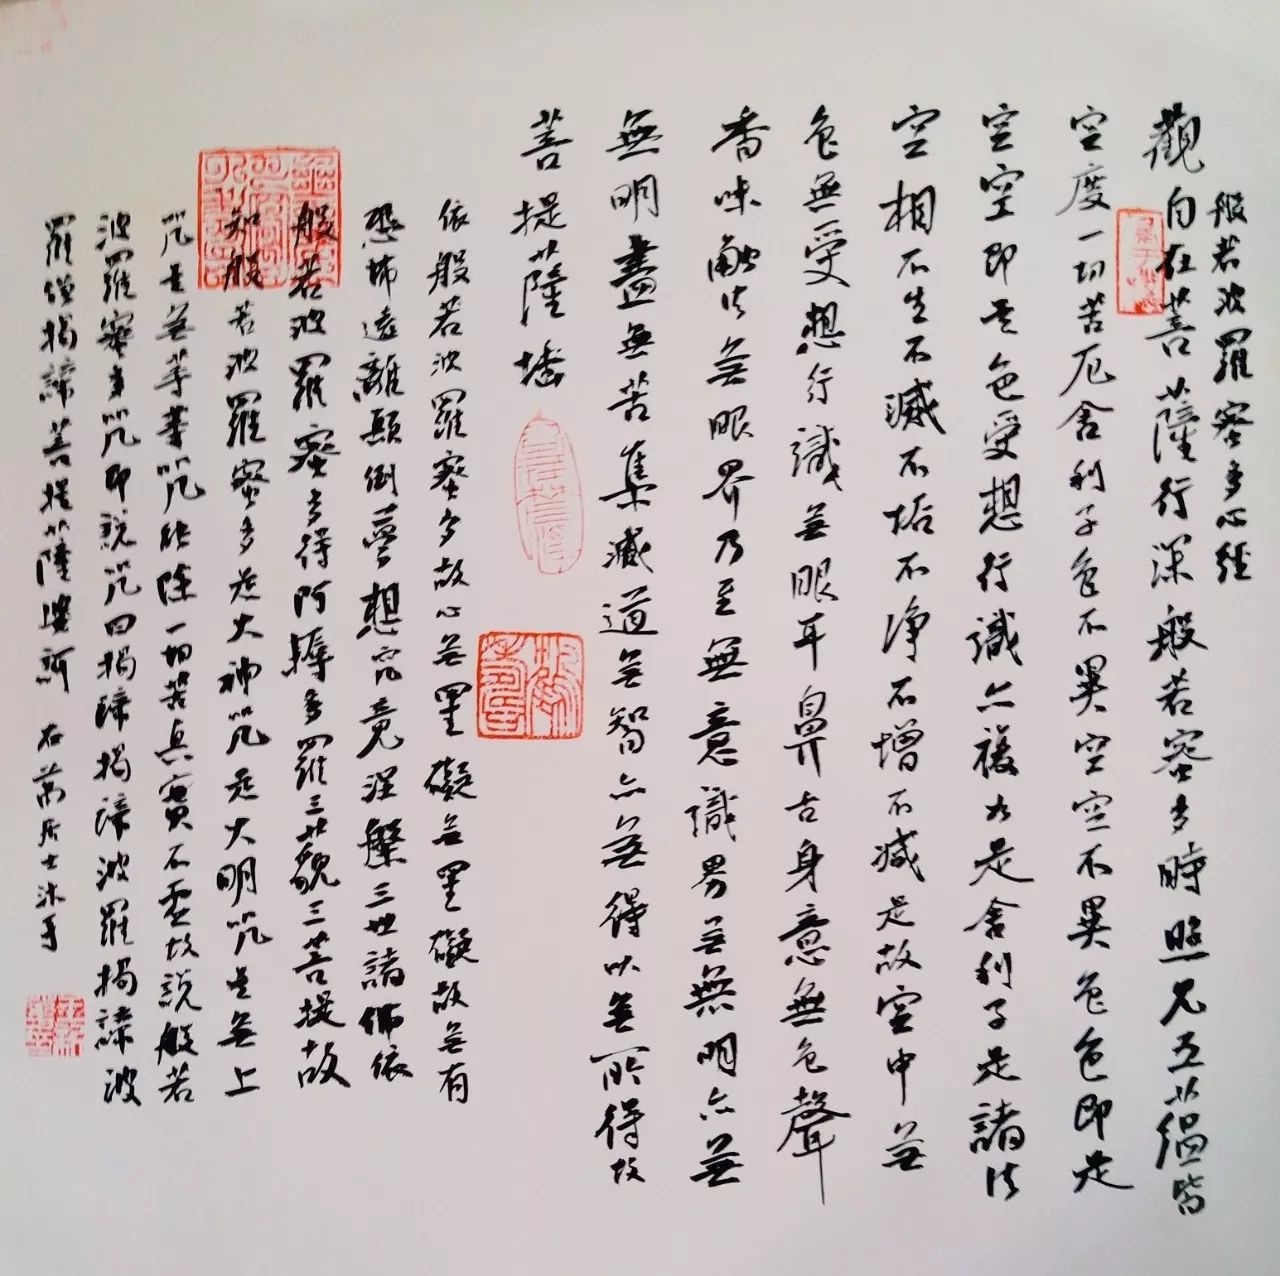 般若波羅蜜多心經
觀自在菩薩行深般若密多時照見五蘊皆
空度一切苦厄舍利子色不異空空不異色色即是
空空即是色受想行識亦復如是舍利子是諸法
空相不生不滅不垢不净不增不減是故空中無
色無受想行識無眼耳鼻舌身意無色聲
香味觸法無眼界乃至無意識界無無明亦無
無明盡無苦集滅道無智亦無得以無所得故
菩提薩埵
依般若波羅蜜多故心無罣礙無罣礙故無有
恐怖遠離顛倒夢想究竟涅槃三世諸佛依
般若波羅蜜多得阿耨多羅三藐三菩提故
知般若波羅蜜多是大神咒是大明咒是無上
咒是無等等咒能除一切苦真實不虛故說般若
波羅蜜多咒即說咒曰揭諦揭諦波羅揭諦波
羅僧揭諦菩提薩婆訶 居士沐手